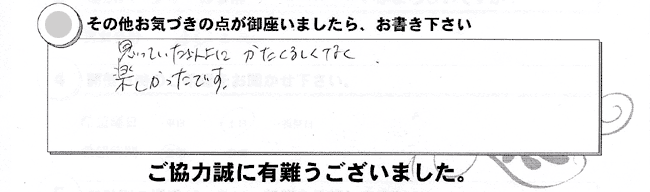 その他お気づきの点が御座いましたら、お書き下さい
思っていたよりも かたくるしくなく
楽しかったです。
ご協力誠に有難うございました。